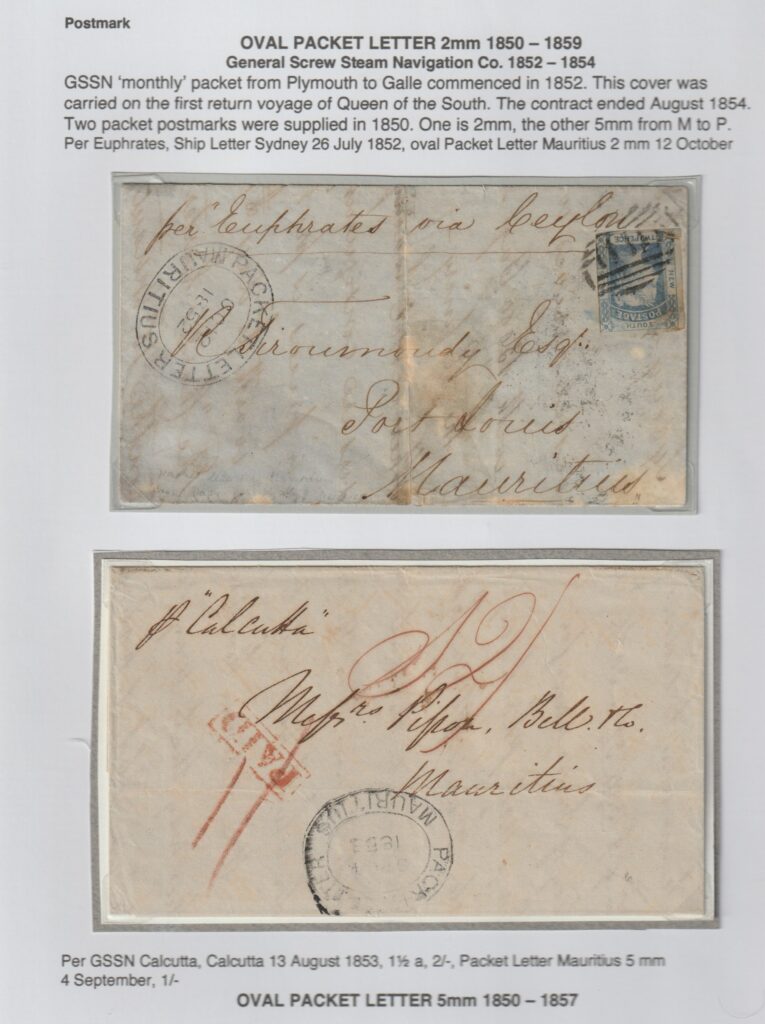 Postmark
OVAL PACKET LETTER 2mm 1850 – 1859
General Screw Steam Navigation Co. 1852 – 1854
GSSN ‘monthly’ packet from Plymouth to Galle commenced in 1852. This cover was
carried on the first return voyage of Queen of the South. The contract ended August 1854.
Two packet postmarks were supplied in 1850. One is 2mm, the other 5mm from M to P.
Per Euphrates, Ship Letter Sydney 26 July 1852, oval Packet Letter Mauritius 2 mm 12 October
per Euphrates via Ceylon
PACKET LETTER MAURITIUS
1852
TWO PENCE
NEW
SOUTH
POSTAGE
Esqr
Port Louis
Mauritius
"Calcutta"
2/
Messrs Pipon, Bell & Co.
Mauritius
PAID
PACKET LETTER MAURITIUS
1853
Per GSSN Calcutta, Calcutta 13 August 1853, 1½ a, 2/-, Packet Letter Mauritius 5 mm
4 September, 1/-
OVAL PACKET LETTER 5mm 1850 – 1857